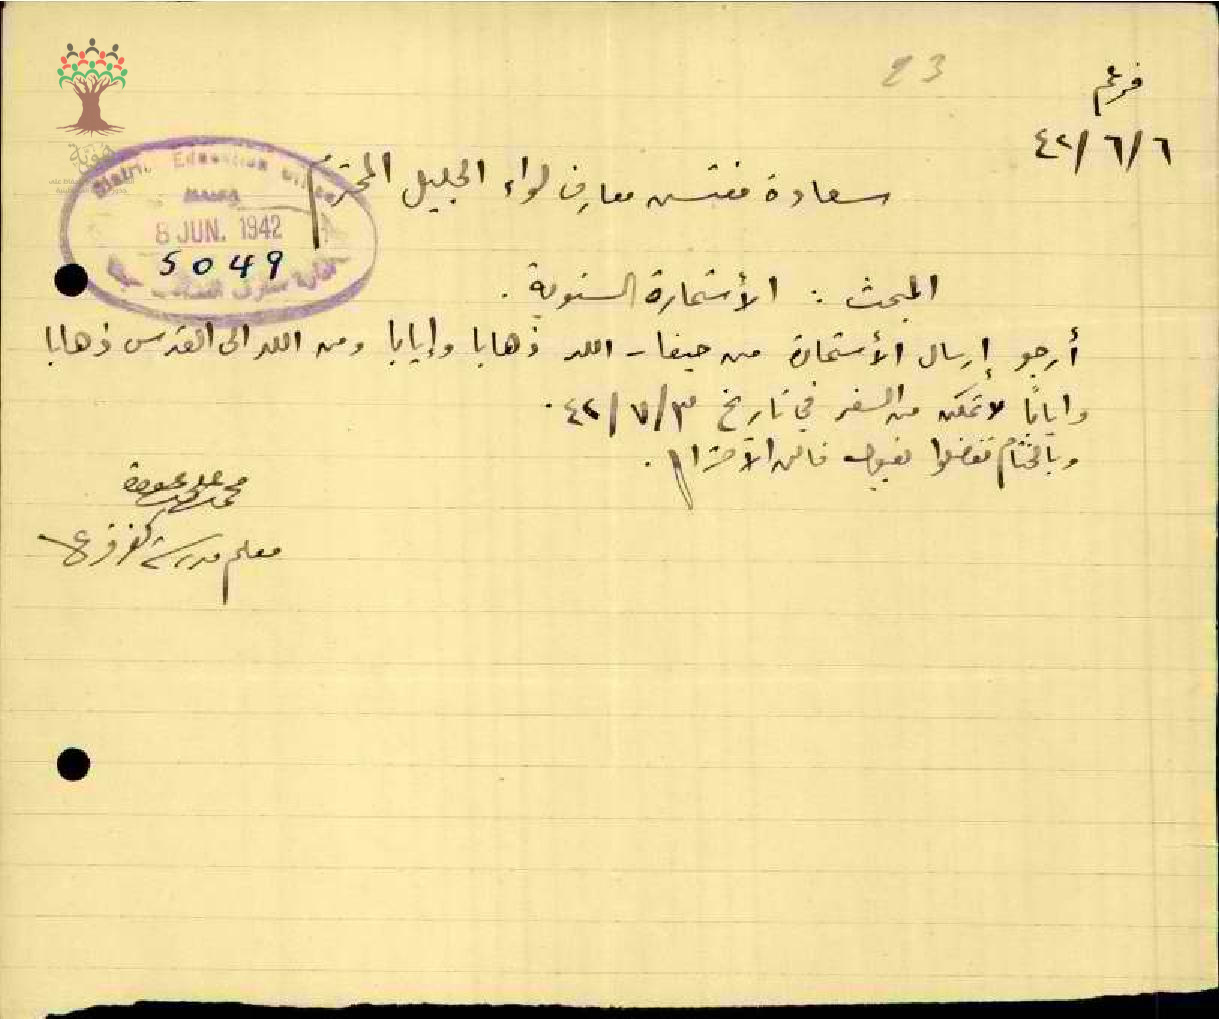 23
فرعم
٤٢/٦/٦
سعادة مفتش معارف لواء الجليل المحترم
District Education Office
8 JUN. 1942
5049
هوية
المبحث : الأستمارة السنوية .
أرجو إرسال الأستمارة من حيفا - اللد ذهابا وإيابا ومن اللد الى القدس ذهابا
وايابًا لاتمكن من السفر في تاريخ ٤٢/٧/٣ .
وبالختام تفضلوا بقبول فائق الأحترام .
محمد علي
معلم مدرسة كفر